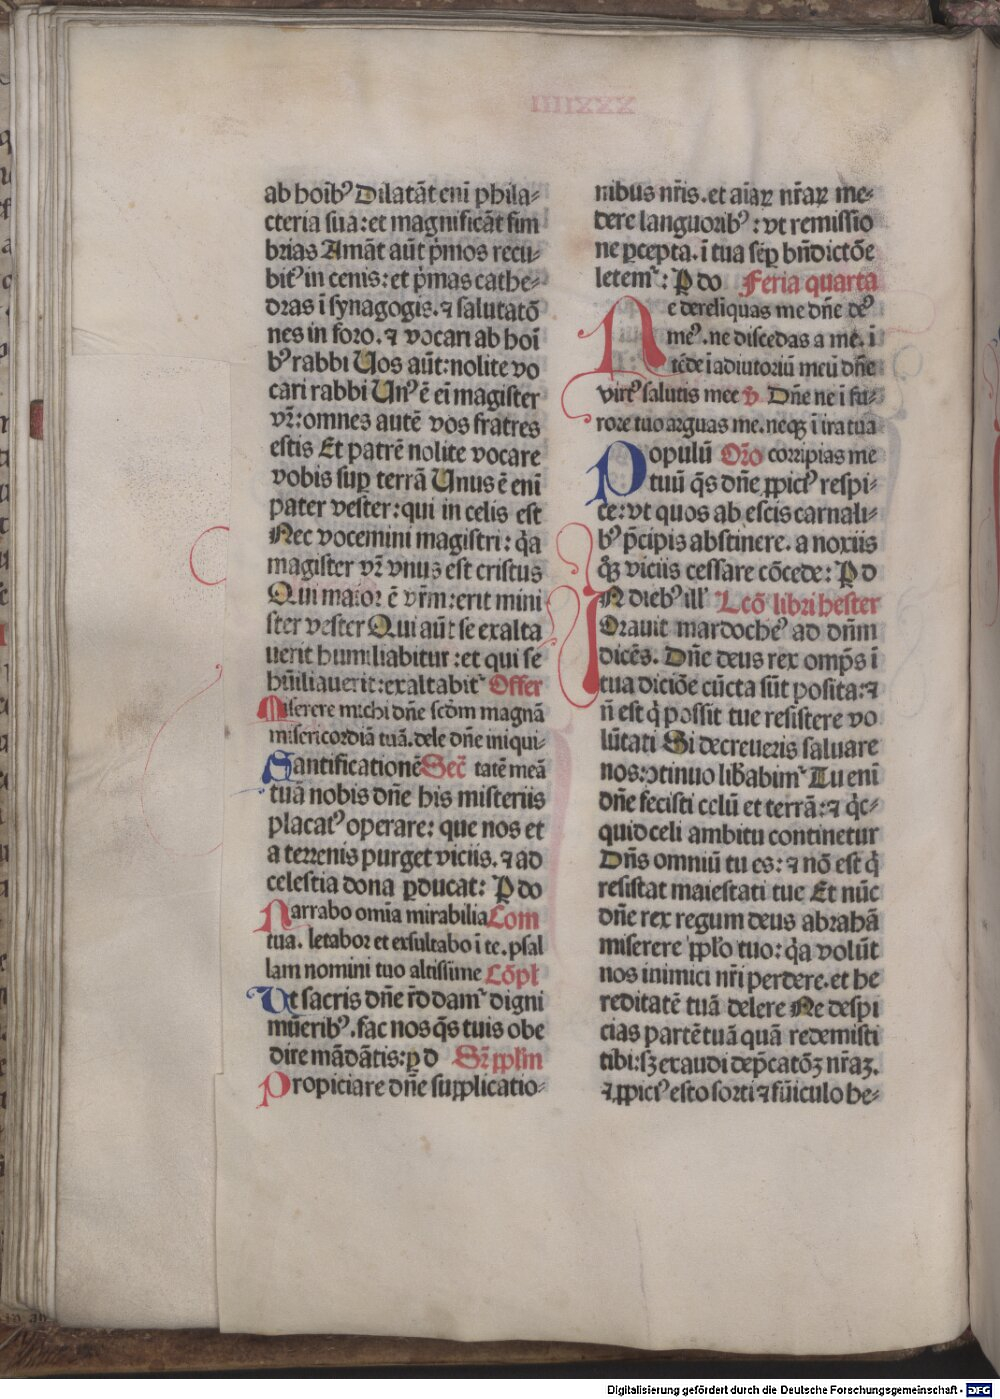 ab hoīb⁹ Dilatāt eni̅ phila⸗
cteria sua: et magnificāt fim
brias Amāt aūt p̄mos recu⸗
bit⁹ in cenis: et p̄mas cathe⸗
dras ī synagogis. ⁊ salutatō
nes in foro. ⁊ vocari ab hoī
b⁹ rabbi Uos aūt: nolite vo
cari rabbi Un⁹ ē ei magister
vr̄: omnes autē vos fratres
estis Et patrē nolite vocare
vobis suꝑ terrā Unus ē enī
pater vester: qui in celis est
Nec vocemini magistri: q̄a
magister vr̄ vnus est cristus
Qui maior ē vr̄m: erit mini
ster vester Qui aūt se exalta
uerit humiliabitur: et qui se
hūiliauerit: exaltabit᷑ Offer
Miserere michi dn̄e scd̄m magnā
misericordiā tuā. dele dn̄e iniqui⸗
Santificationē Sec̄ tatē meā
tuā nobis dn̄e his misteriis
placat⁹ operare: que nos et
a terrenis purget viciis. ⁊ ad
celestia dona ꝑducat: P do
Narrabo om̄ia mirabilia Com
tua. letabor et exsultabo ī te. psal
lam nomini tuo altissime Cōpl̄
Ut sacris dn̄e r̄ddam᷑ digni
mūerib⁹. fac nos q̄s tuis obe
dire mādātis: ꝑ d Sr̄ pplm̄
Propiciare dn̄e supplicatio⸗
nibus nr̄is. et aīaꝝ nr̄aꝝ me⸗
dere languorib⁹: vt remissio
ne ꝑcepta. ī tua sēꝑ bn̄dictōe
letem᷑: P do Feria quarta
Ne derelinquas me dn̄e de⁹
me⁹. ne discedas a me. ī
tēde ī adiutoriū meū dn̄e
virt⁹ salutis mee v̄ Dn̄e ne ī fu⸗
rore tuo arguas me. neqꝫ ī ira tua
Populū Or̄o corripias me
tuū q̄s dn̄e ꝓpici⁹ respi⸗
ce: vt quos ab escis carnali⸗
b⁹ p̄cipis abstinere. a noxiis
q̄qꝫ viciis cessare cōcede: P d
IN dieb⁹ ill᷑ Lcō libri hester
Orauit mardoche⁹ ad dn̄m
dicēs. Dn̄e deus rex omp̄s ī
tua diciōe cūcta sūt posita: ⁊
n̄ est q̄ possit tue resistere vo
lūtati Si decreueris saluare
nos: ↄtinuo lib̄abim᷑ Tu enī
dn̄e fecisti celū et terrā: ⁊ q̄c⸗
quid celi ambitu continetur
Dn̄s omniū tu es: ⁊ nō est q̄
resistat maiestati tue Et nūc
dn̄e rex regum deus abrahā
miserere ppl̄o tuo: q̄a volūt
nos inimici nr̄i perdere. et he
reditatē tuā delere Ne despi
cias partē tuā quā redemisti
tibi: sꝫ exaudi dep̄catōꝫ nr̄aꝫ.
⁊ ꝓpici⁹ esto sorti ⁊ fūiculo he⸗
Digitalisierung gefördert durch die Deutsche Forschungsgemeinschaft - DFG